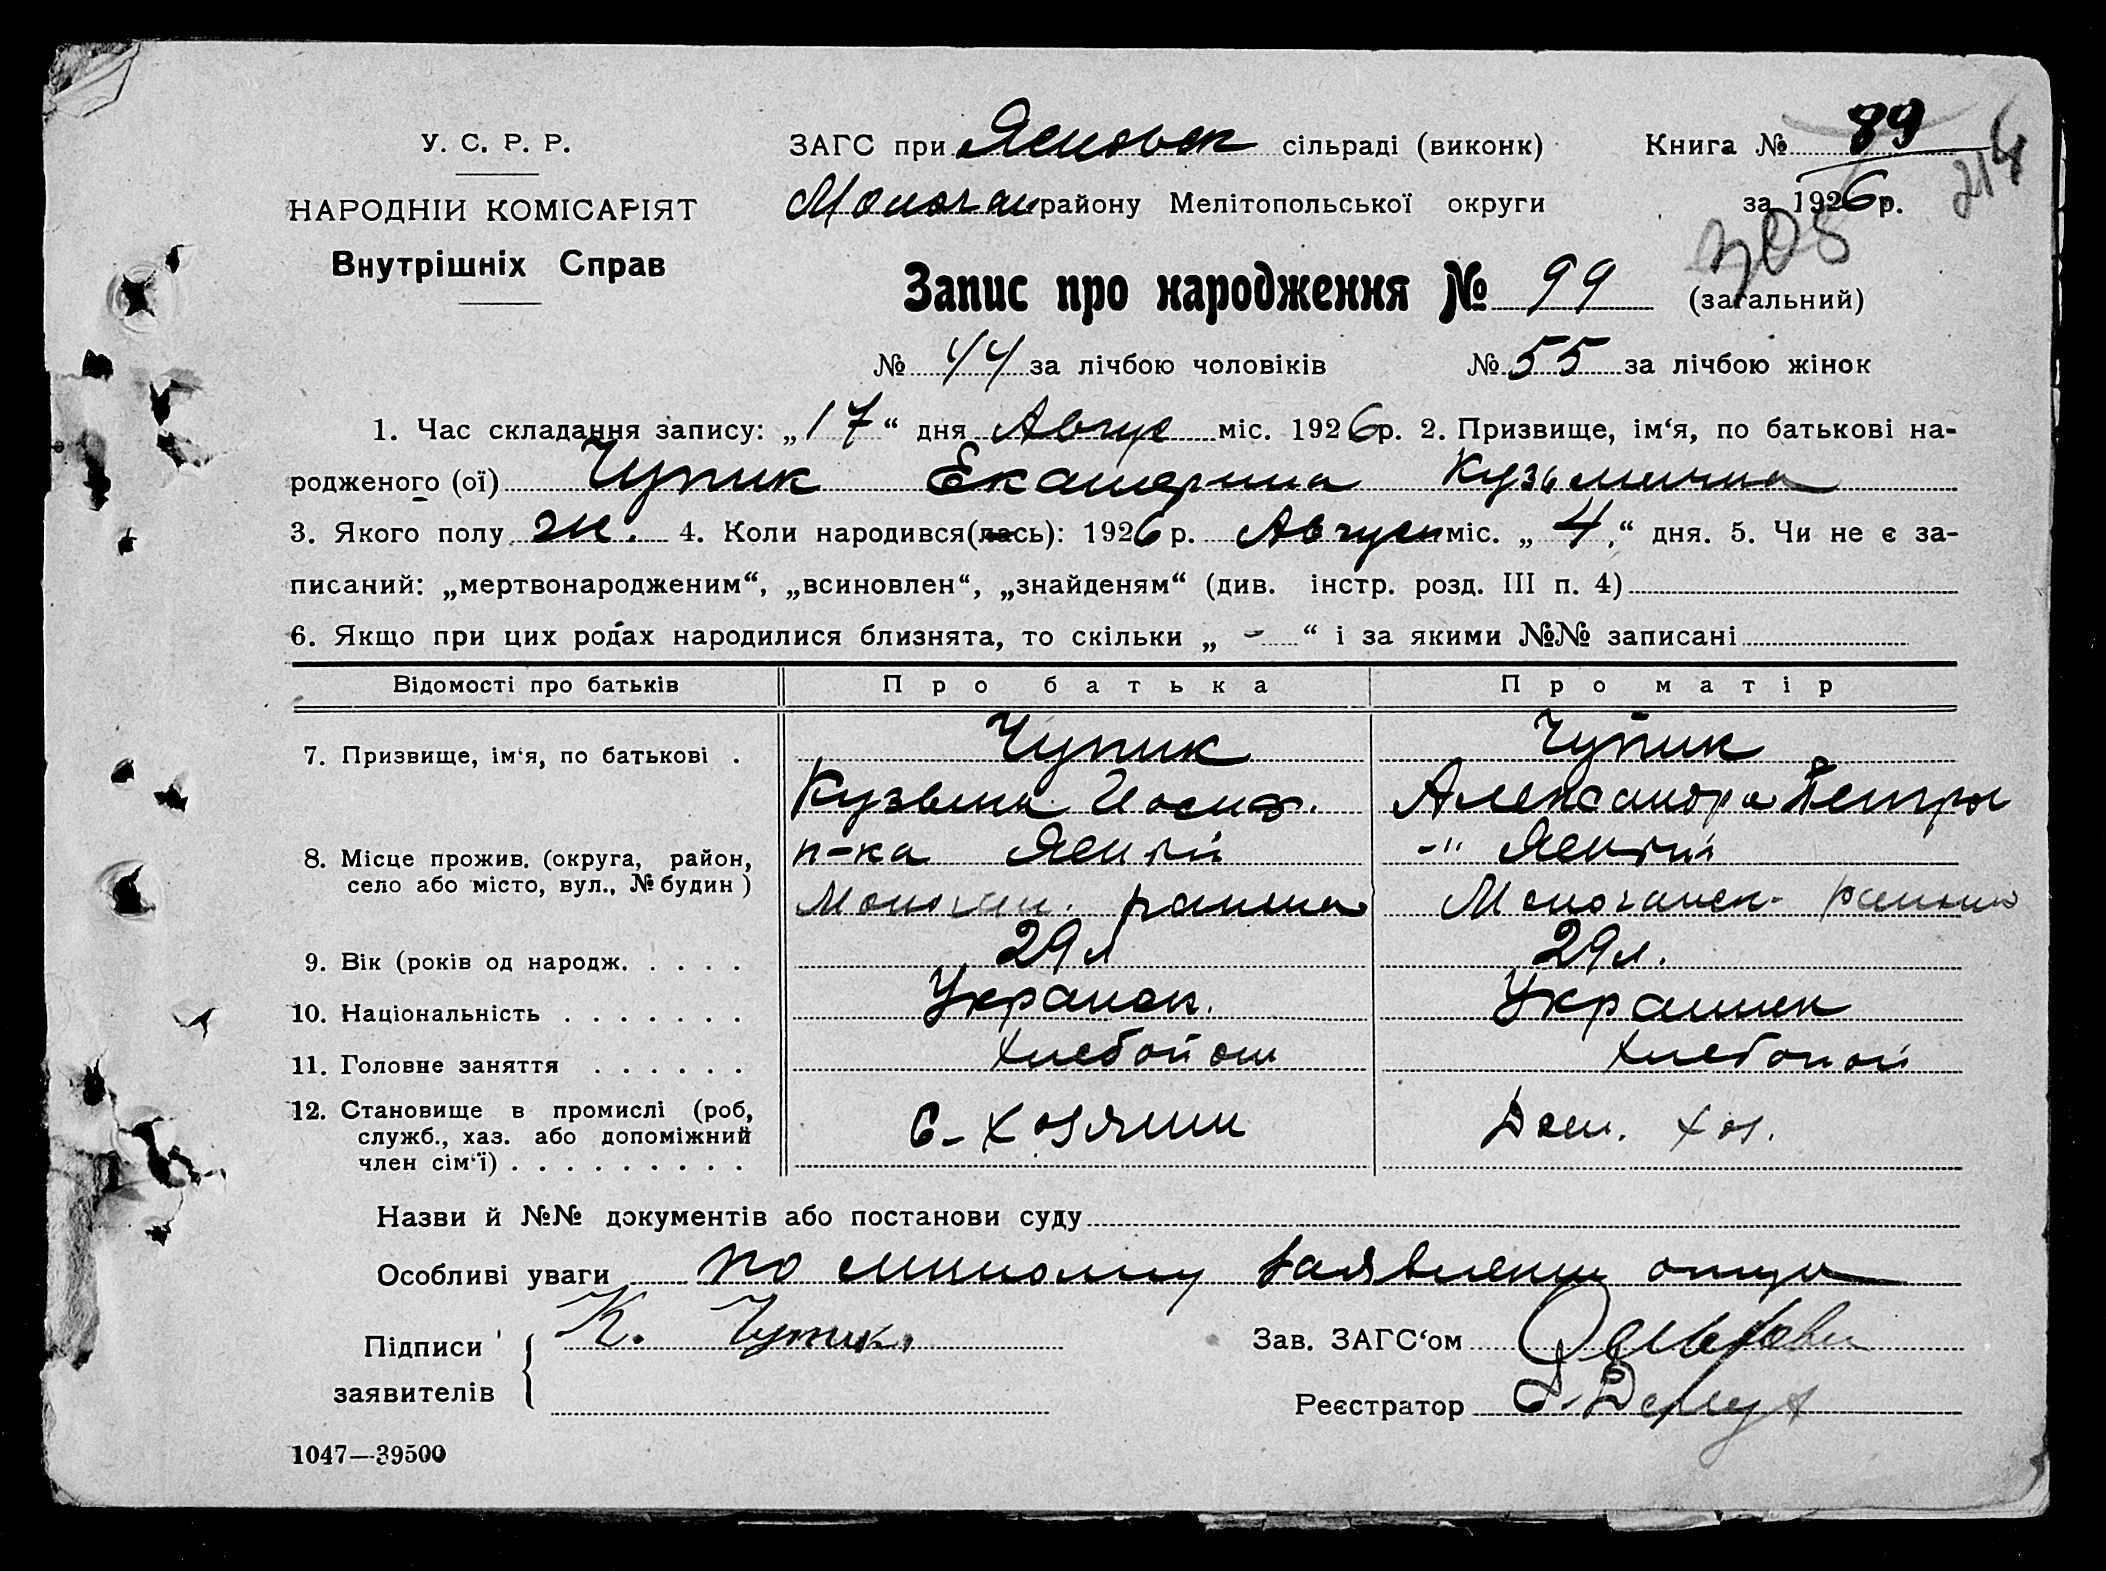 У. С. Р. Р.
НАРОДНІЙ КОМІСАРІЯТ
Внутрішніх Справ
ЗАГС при сільраді (виконк)
району Мелітопольської округи
Книга № 89
за 1926 р.
214
Запис про народження № 99 (загальний)
№ 44 за лічбою чоловіків № 55 за лічбою жінок
1. Час складання запису: „17“ дня Авгус міс. 1926р. 2. Призвище, ім‘я, по батькові на-
родженого (ої) Чупик Екатерина Кузьминична
3. Якого полу ж. 4. Коли народився(лась): 1926 р. Август міс. „4“ дня. 5. Чи не є за-
писаний: „мертвонародженим“, „всиновлен“, „знайденям“ (див. інстр. розд. III п. 4)
6. Якщо при цих родах народилися близнята, то скільки „ - “ і за якими №№ записані
Відомості про батьків Про батька Про матір
7. Призвище, ім‘я, по батькові . Чупик Чупик
Кузьма Иосиф. Александра Петров
8. Місце прожив. (округа, район,
село або місто, вул., № будин )
п-ка -"
9. Вік (років од народж. . . . . 29 л 29 л.
10. Національність . . . . . . . Украинс. Украинск
11. Головне заняття . . . . . . Хлебопаш Хлебопаш
12. Становище в промислі (роб,
служб., хаз. або допоміжний
член сім‘ї) . . . . . . . . .
С-хозяин Дом. хоз.
Назви й №№ документів або постанови суду
Особливі уваги по личному заявлению отца
Підписи
заявителів
К. Чупик.
Зав. ЗАГС‘ом
Реєстратор
1047—39500